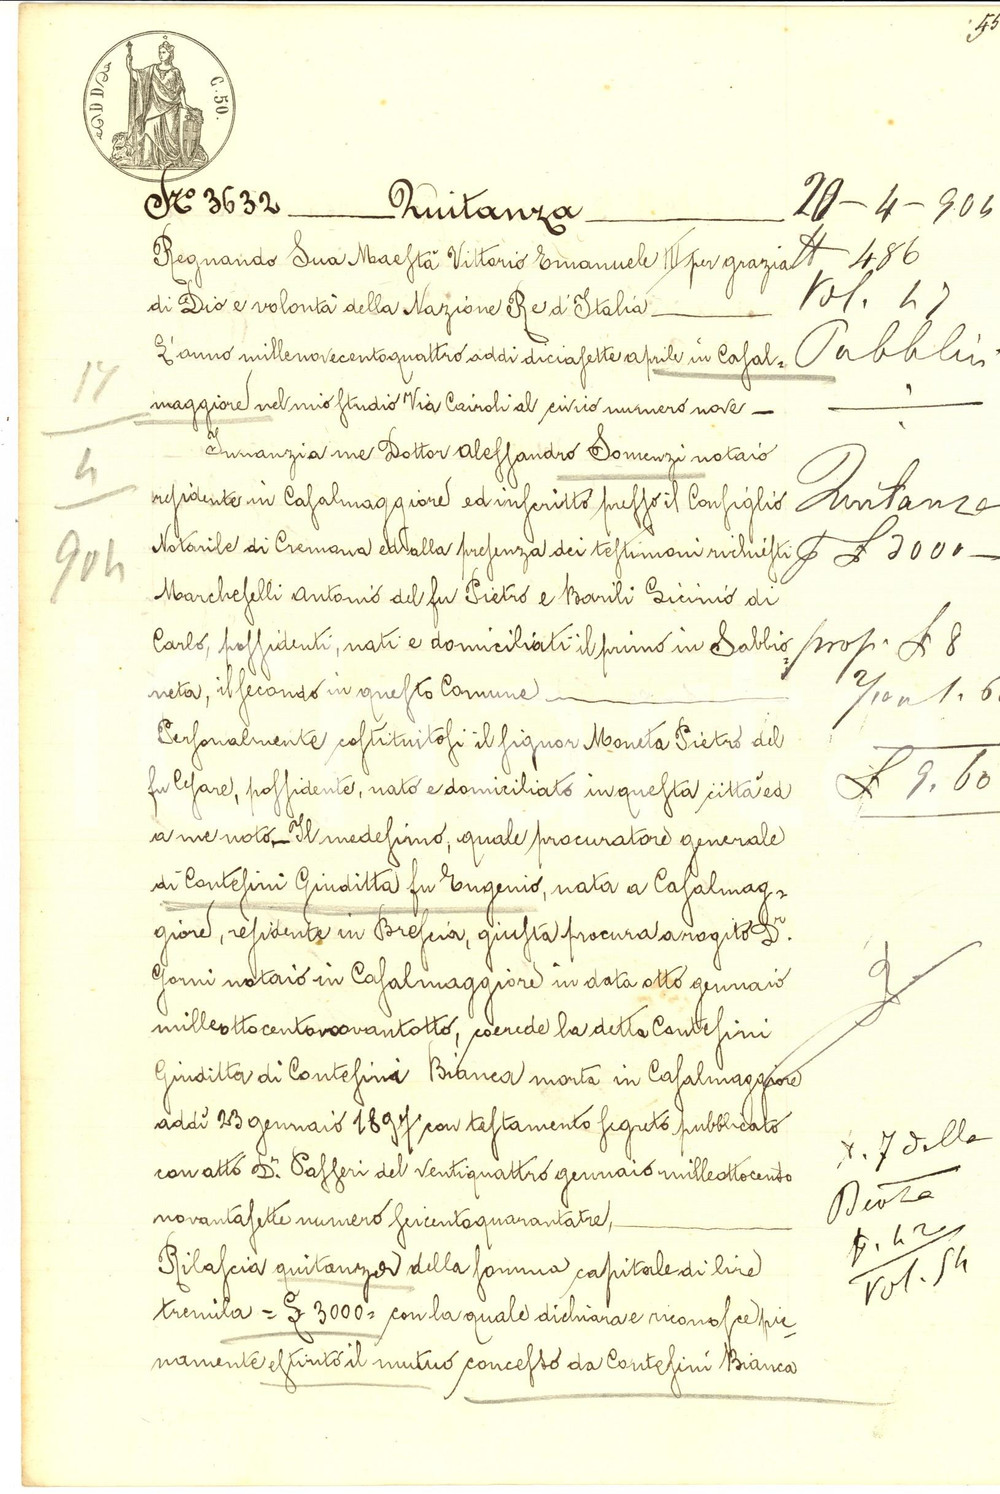 55
C. 50.
N.° 3632 Quitanza
Regnando Sua Maestà Vittorio Emanuele III per grazia
di Dio e volontà della Nazione Re d'Italia
L'anno millenovecentoquattro addì diciasette aprile in Casal=
maggiore nel mio studio Via Cairoli al civico numero nove —
Innanzi a me Dottor Alessandro Somenzi notaio
residente in Casalmaggiore ed inscritto presso il Consiglio
Notarile di Cremona ed alla presenza dei testimoni richiesti
Marcheselli Antonio del fu Pietro e Barili Licinio di
Carlo, possidenti, nati e domiciliati il primo in Sabbio=
neta, il secondo in questo Comune
Personalmente costituitosi il signor Moneta Pietro del
fu Cesare, possidente, nato e domiciliato in questa città ed
a me noto. — Il medesimo, quale procuratore generale
di Contesini Giuditta fu Eugenio, nata a Casalmag=
giore, residente in Brescia, giusta procura a rogito Dr.
Gorni notaio in Casalmaggiore in data otto gennaio
milleottocentonovantotto, coerede la detta Contesini
Giuditta di Contesini Bianca morta in Casalmaggiore
addì 23 gennaio 1897 con testamento segreto pubblicato
con atto Dr. Passeri del ventiquattro gennaio milleottocento
novantasette numero seicentoquarantatre,
Rilascia quitanza della somma capitale di lire
tremila = £ 3000 = con la quale dichiara e riconosce pie=
namente estinto il mutuo concesso da Contesini Bianca
17
4
904
20 - 4 - 904
N 486
Vol. 47
Pubblici
Quitanza
£ 3000 —
prop. £ 8
1. 60
£ 9. 60
N. 7 della
42
Vol. 54